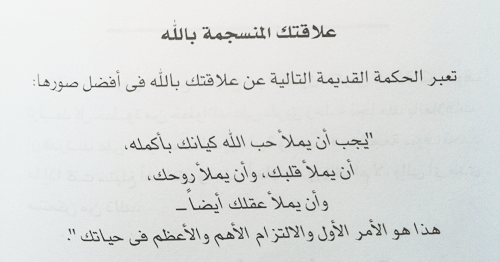 علاقتك المنسجمة بالله
تعبر الحكمة القديمة التالية عن علاقتك بالله فى أفضل صورها:
"يجب أن يملأ حب الله كيانك بأكمله،
أن يملأ قلبك، وأن يملأ روحك،
وأن يملأ عقلك أيضاً ــ
هذا هو الأمر الأول والالتزام الأهم والأعظم فى حياتك".